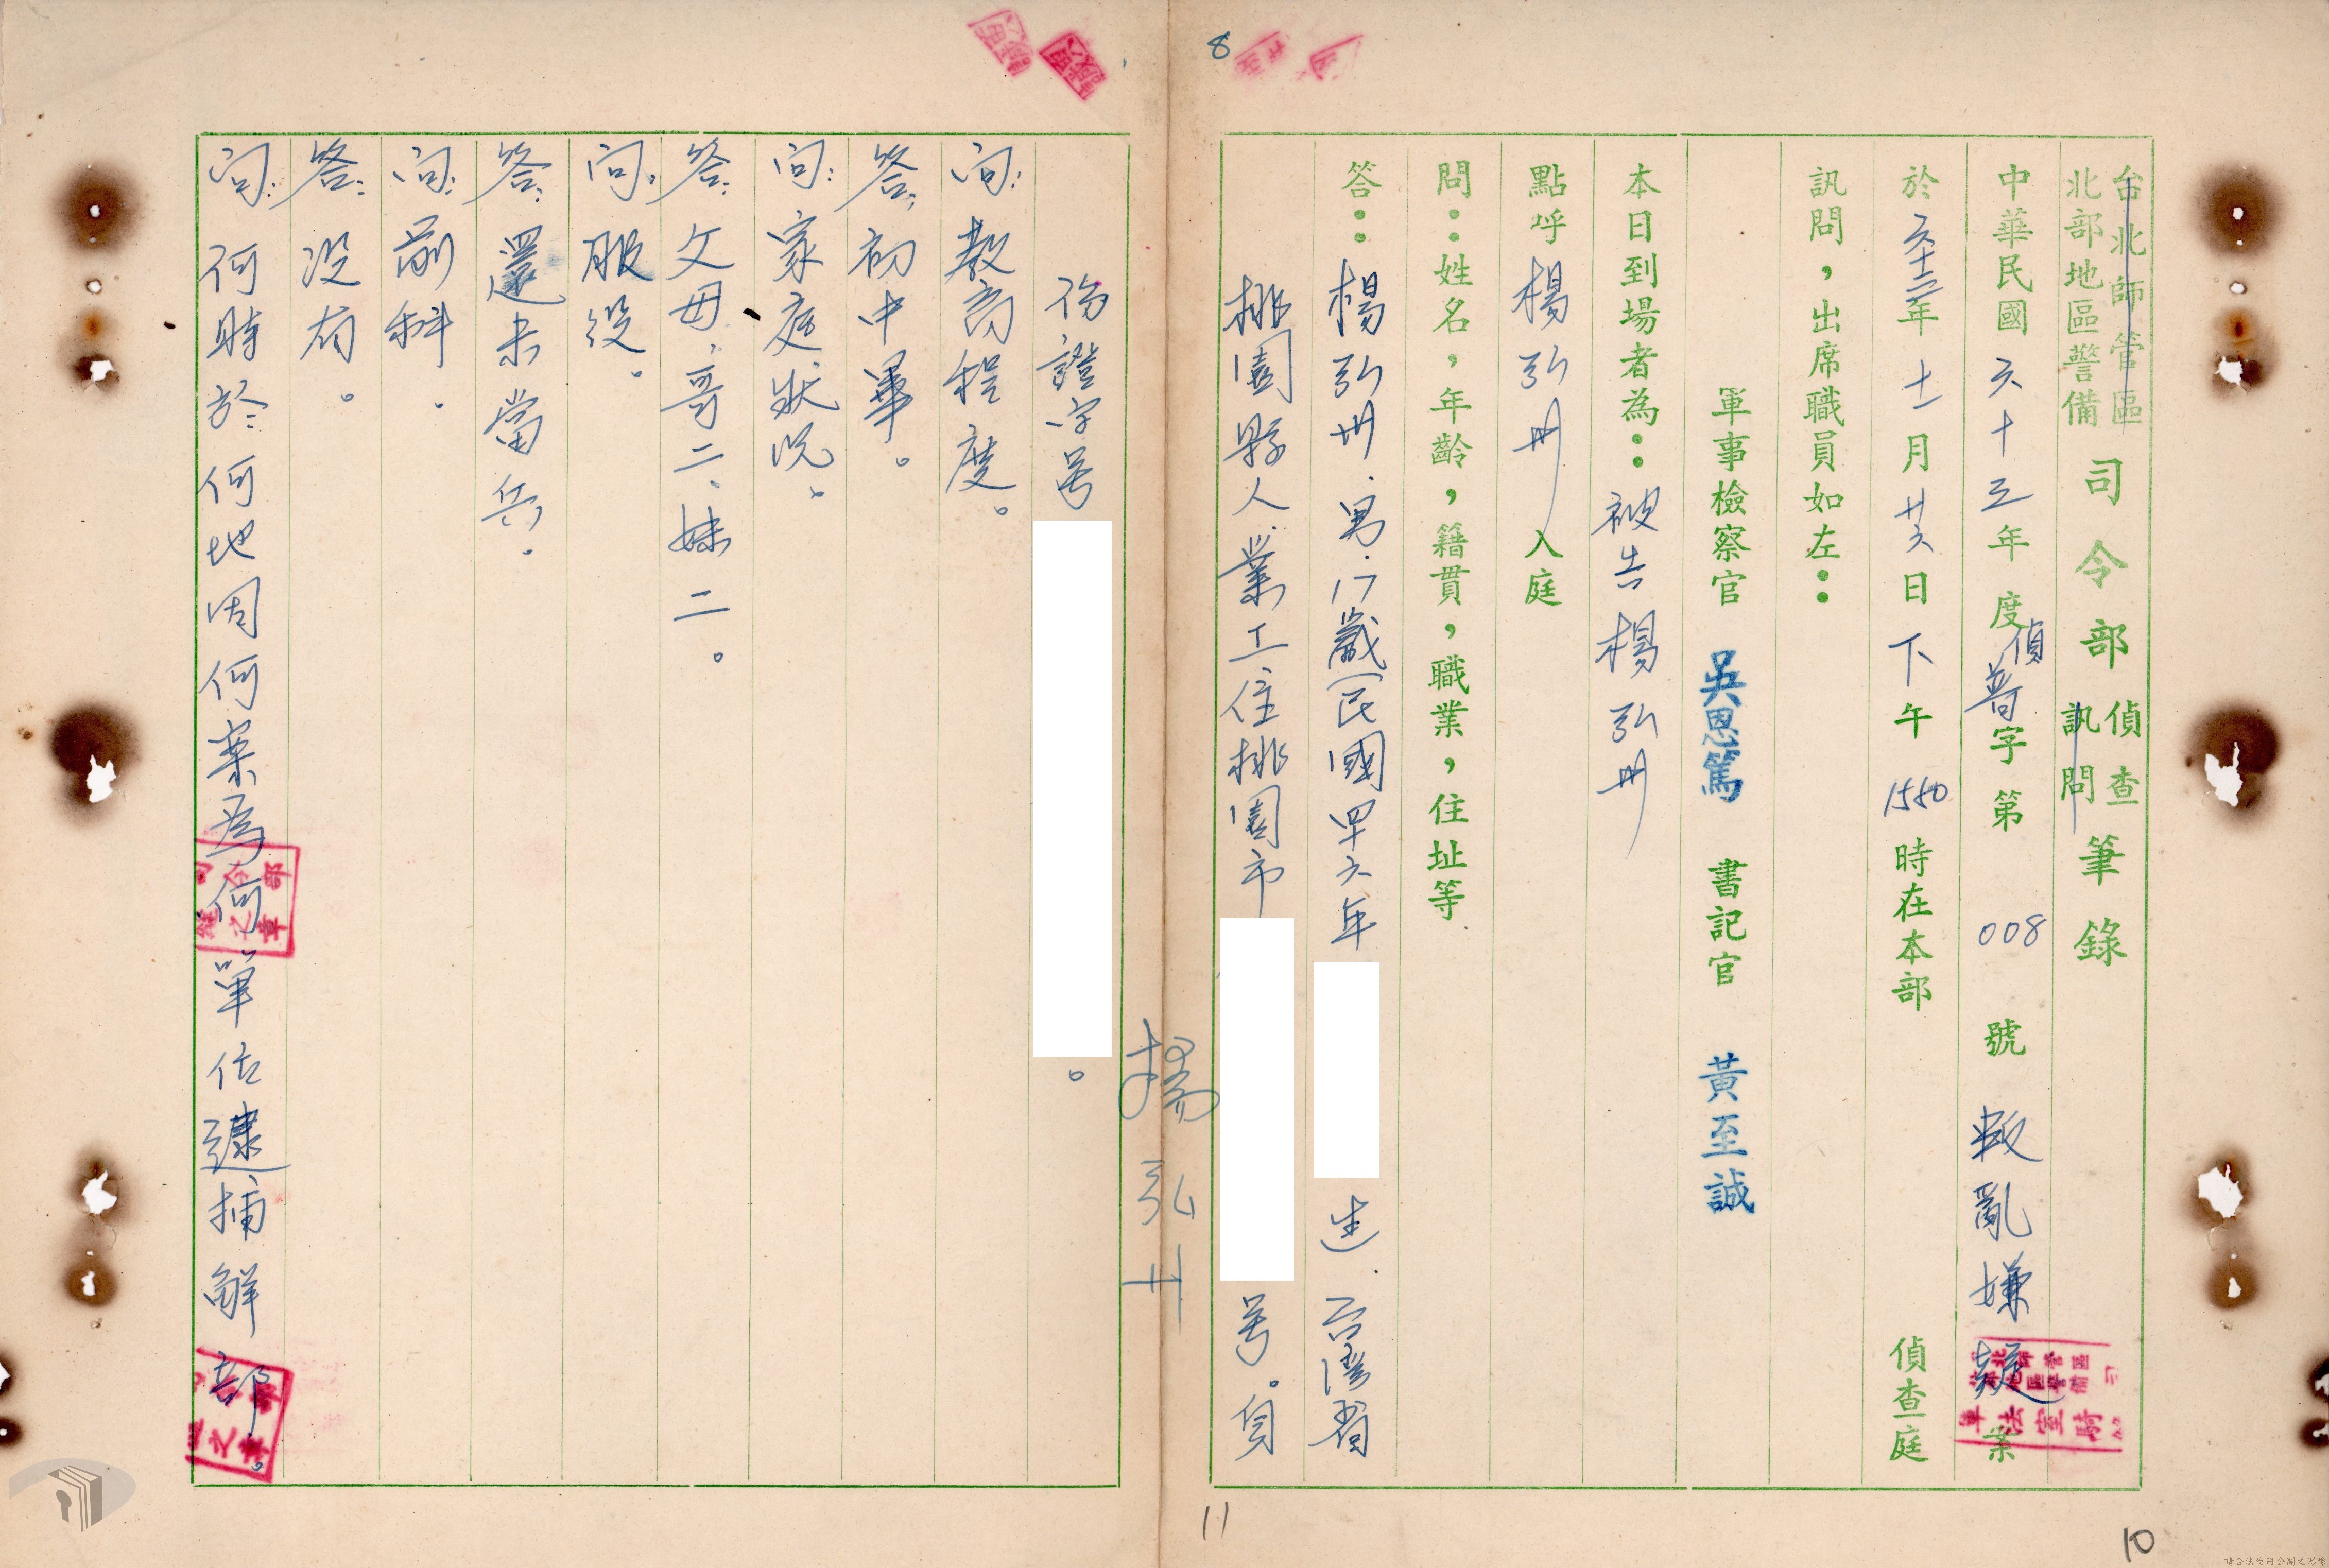 台北師管區
北部地區警備
司令部
偵查
訊問
筆錄
中華民國六十三年度偵普字第008號叛亂嫌疑案
於六十三年十一月廿六日下午1550時在本部偵查庭
訊問，出席職員如左：
軍事檢察官 吳恩篤 書記官 黃至誠
本日到場者為：被告楊弘卅
點呼楊弘卅入庭
問：姓名，年齡，籍貫，職業，住址等
答：楊弘卅．男．17歲(民國四六年 生．台灣省
桃園縣人業工住桃園市 号。身
份證字号 。
問：教育程度。
答：初中畢。
問：家庭狀況。
答：父母、哥二、妹二。
問：服役。
答：還未當兵．
問：前科．
答：沒有。
問：何時於何地因何案為何單位逮捕解部。
楊弘卅
8
11
10
請合法使用公開之影像